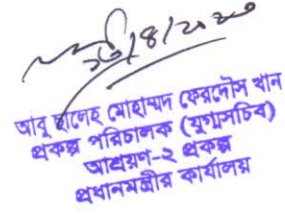 আবু ছালেহ মোহাম্মদ ফেরদৌস খান
প্রকল্প পরিচালক (যুগ্মসচিব)
আশ্রয়ণ-২ প্রকল্প
প্রধানমন্ত্রীর কার্যালয়